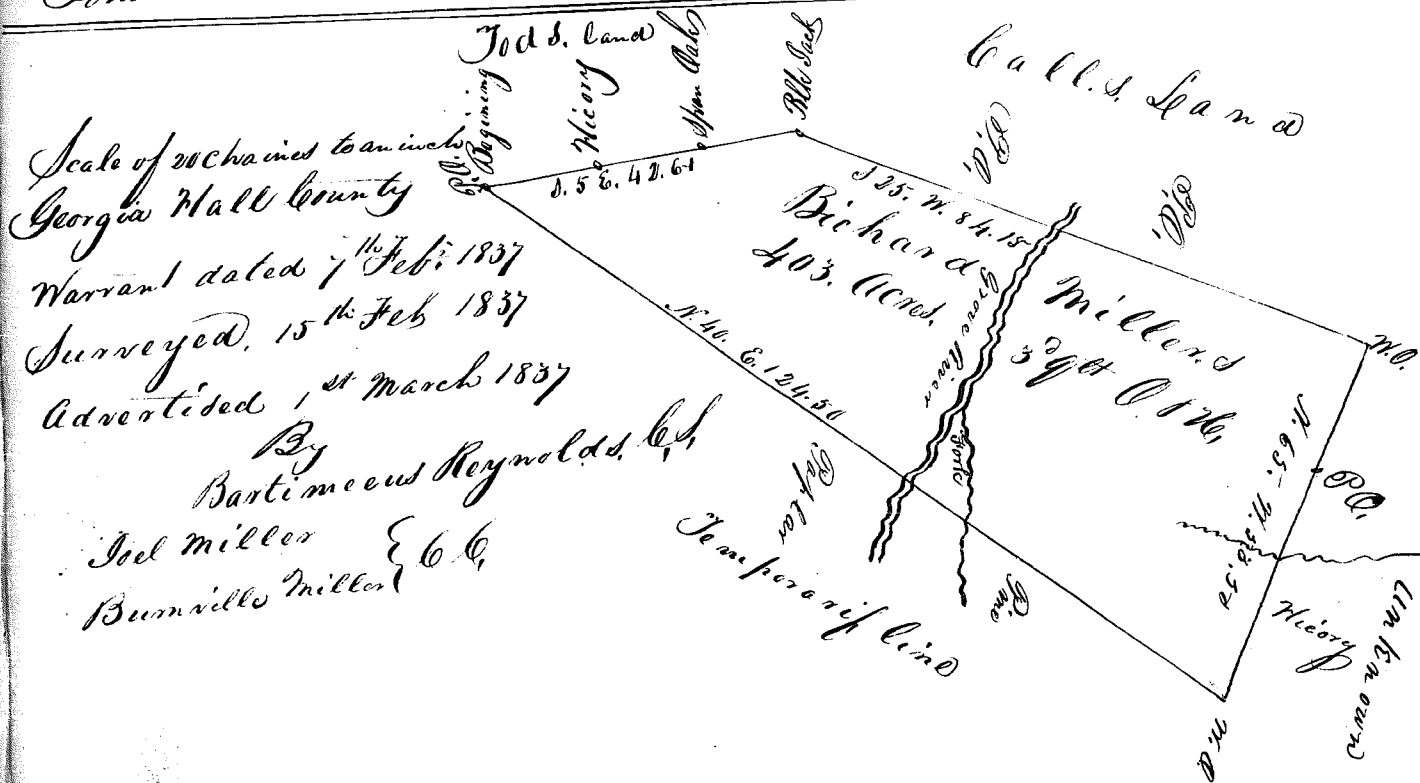 Scale of 20 Chaines to an inch
Georgia Hall County
Warrant dated 7th Feb. 1837
Surveyed, 15th Feb 1837
Advertised 1st March 1837
By
Bartimeeus Reynolds. C.S.
Joel Miller
Burnville Miller } C C,
Tod S. land
P.O. Begining
Hicory
Span Oak
Blk Jack
Call.s. Land
P.O,
P.O,
S. 5 E. 42.61
S 25. W. 84.15
Bichard Miller.s
403. Acres.
3d qlt O. & H,
Grove River
Forke
N. 40. E. 124.50
Poplar
Pine
Temporarif line
W.O.
N. 65. W. 58.50
P.O,
Hicory
W.O
Unknown